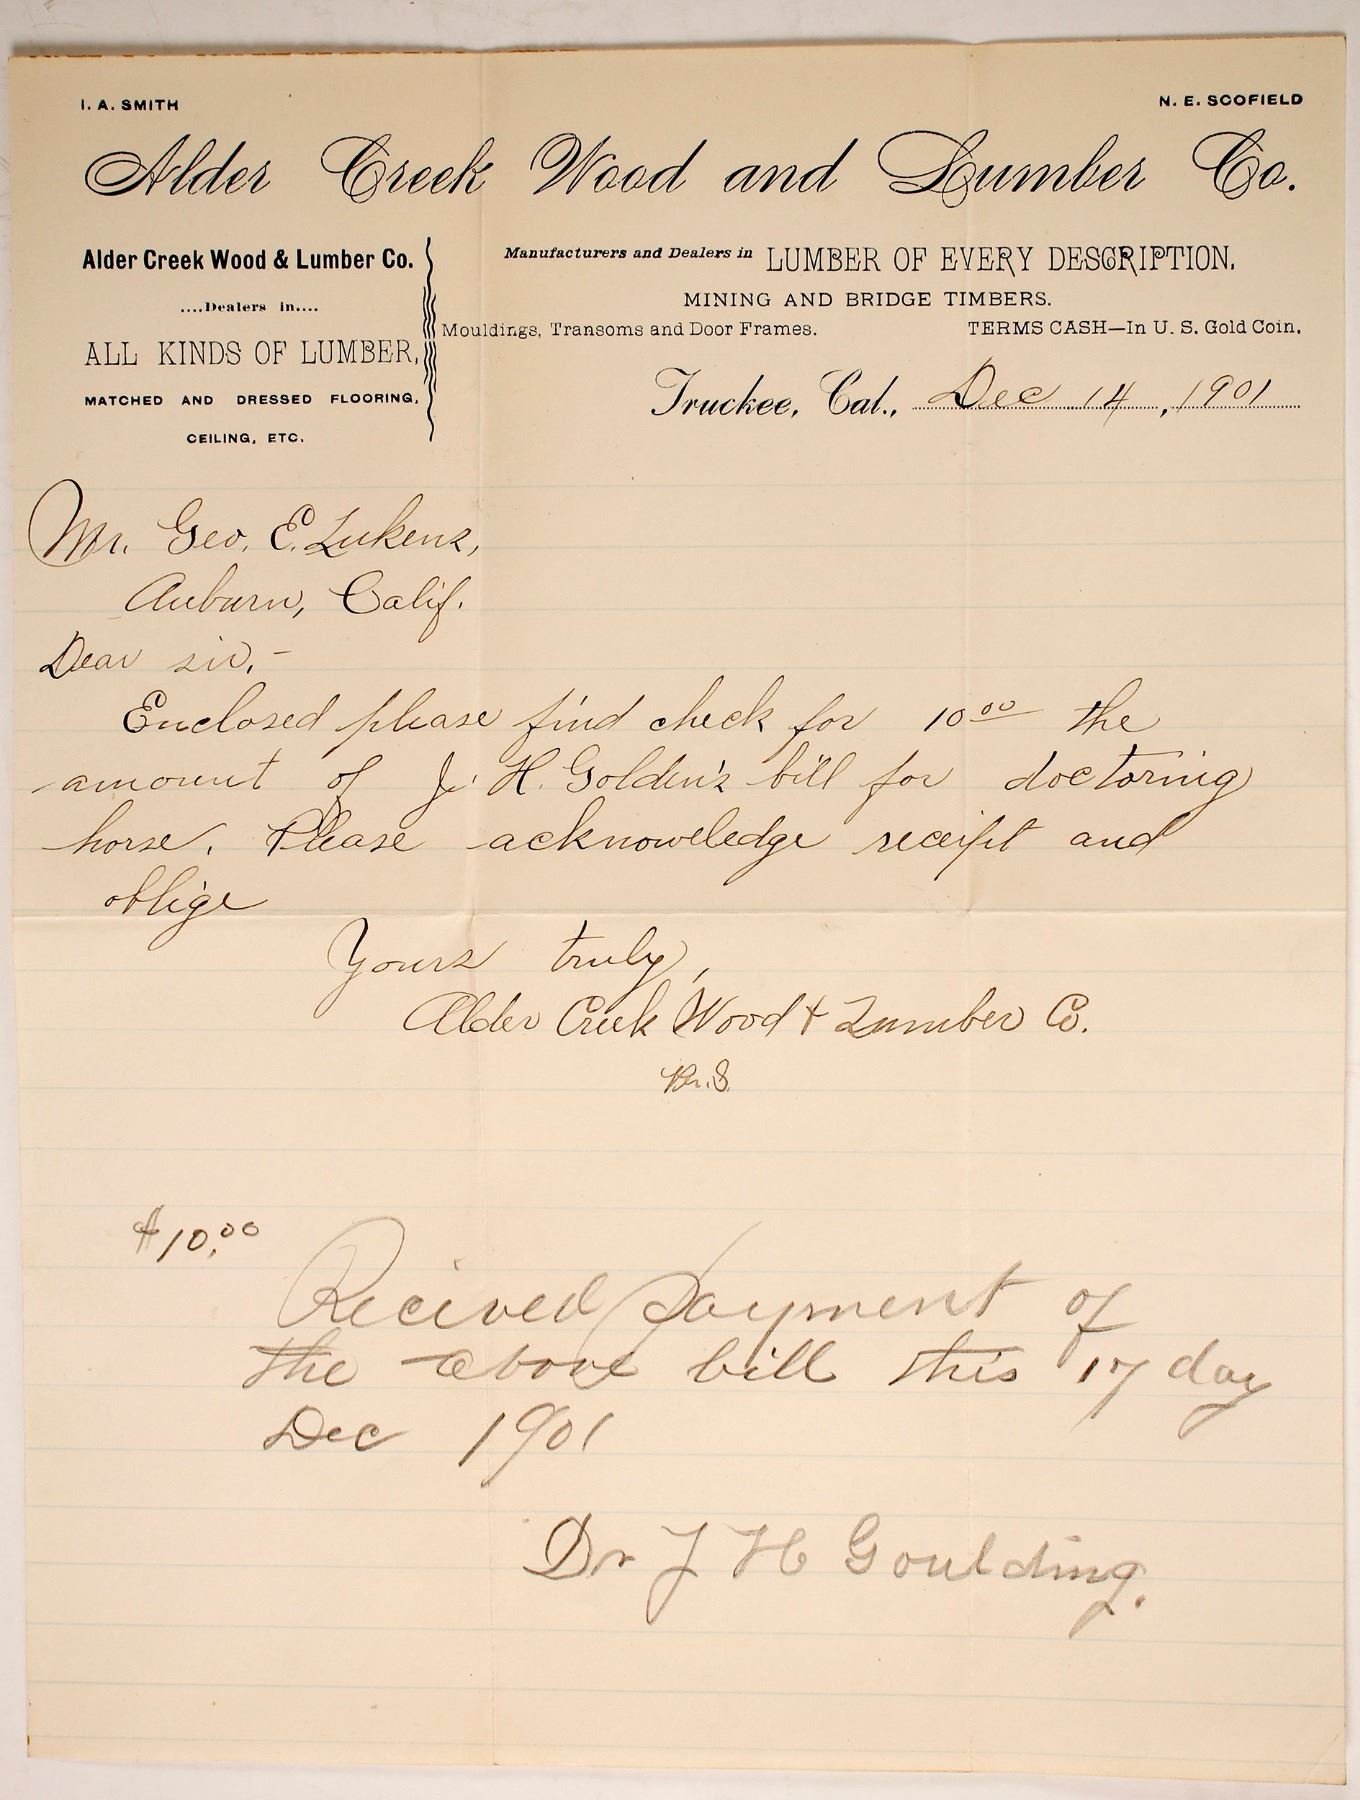 I. A. SMITH
N. E. SCOFIELD
Alder Creek Wood and Lumber Co.
Alder Creek Wood & Lumber Co.
....Dealers in....
ALL KINDS OF LUMBER,
MATCHED AND DRESSED FLOORING,
CEILING, ETC.
Manufacturers and Dealers in LUMBER OF EVERY DESCRIPTION.
MINING AND BRIDGE TIMBERS.
Mouldings, Transoms and Door Frames. TERMS CASH—In U. S. Gold Coin.
Truckee, Cal., Dec 14, 1901
Mr. Geo. E. Lukens,
Auburn, Calif.
Dear sir,-
Enclosed please find check for 10 00 the
amount of J. H. Golden's bill for doctoring
horse. Please acknoweledge receipt and
oblige
Yours truly,
Alder Creek Wood & Lumber Co.
$10.00
Recived payment of
the above bill this 17 day
Dec 1901
Dr J H Goulding.